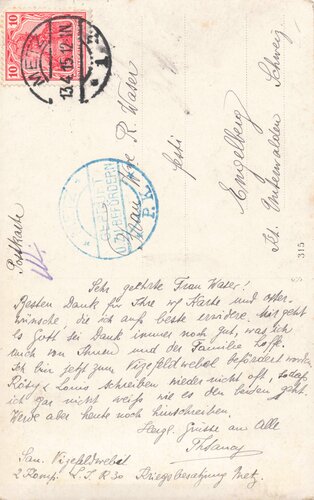 Postkarte
10
10
METZ
13.4.15.12-1N.
* 1
BEFÖRDERN
P. K.
Frau R. Waser
Engelberg
Kt. Unterwalden Schweiz
315
Sehr geehrte Frau Waser!
Besten Dank für Ihre Karte und Oster-
wünsche, die ich auf's beste erwidre. Mir geht
es Gott sei Dank immer noch gut, was ich
auch von Ihnen und der Familie hoffe.
Ich bin jetzt zum Vizefeldwebel befördert worden
Rösy & Louis schreiben wieder nicht oft, sodass
ich gar nicht weiß wie es den beiden geht.
Werde aber heute noch hinschreiben.
Herzl. Grüsse an Alle
San. Vizefeldwebel
2 Komp. L. J. R 30 Kriegsbesatzung Metz.